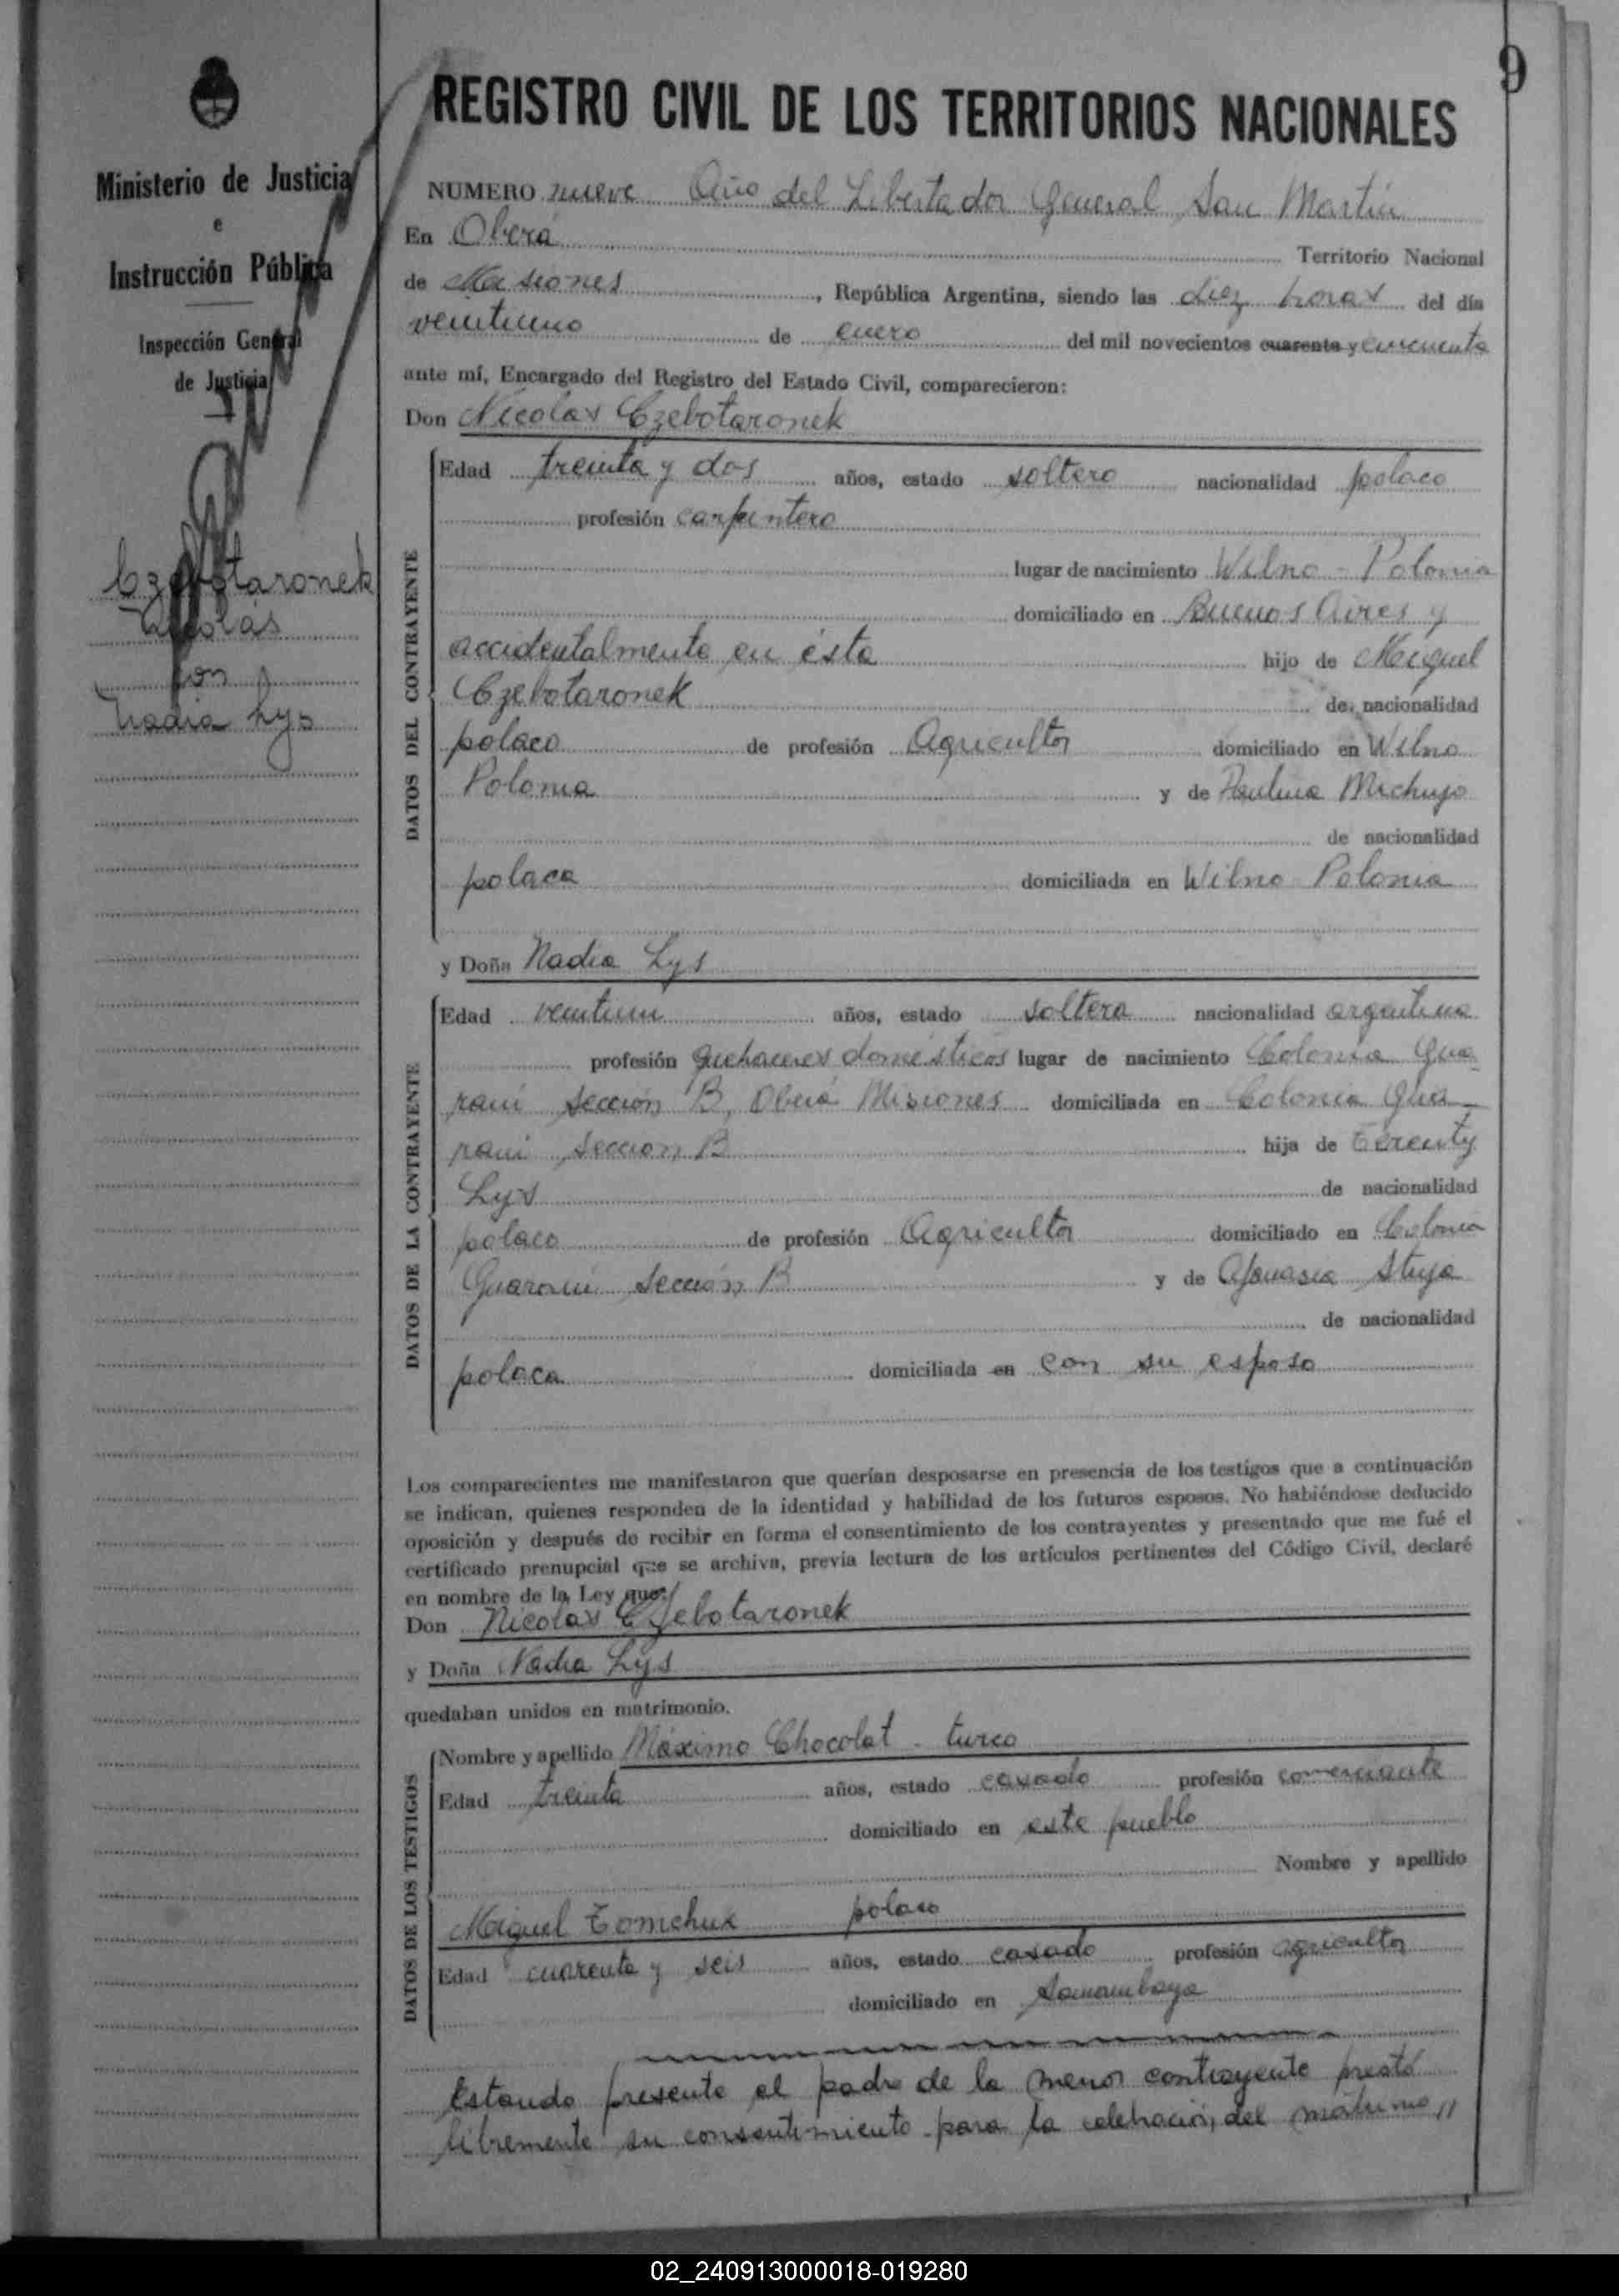 9
REGISTRO CIVIL DE LOS TERRITORIOS NACIONALES
Ministerio de Justicia
e
Instrucción Pública
Inspección General
de Justicia
Czebotaronek
Nicolás
con
Nadia Lys
NUMERO nueve Año del Libertador General San Martín
En Oberá Territorio Nacional
de Misiones, República Argentina, siendo las diez horas del día
veintiuno de enero del mil novecientos cuarenta y cincuenta
ante mí, Encargado del Registro del Estado Civil, comparecieron:
Don Nicolas Czebotaronek
DATOS DEL CONTRAYENTE
Edad treinta y dos años, estado soltero nacionalidad polaco
profesión carpintero
lugar de nacimiento Wilno - Polonia
domiciliado en Buenos Aires y
accidentalmente en ésta hijo de Miguel
Czebotaronek de nacionalidad
polaco de profesión Agricultor domiciliado en Wilno
Polonia y de Paulina Michujo
de nacionalidad
polaca domiciliada en Wilno Polonia
y Doña Nadia Lys
DATOS DE LA CONTRAYENTE
Edad veintiun años, estado soltera nacionalidad argentina
profesión quehaceres domésticos lugar de nacimiento Colonia Gua
raní Sección B, Oberá Misiones domiciliada en Colonia Gua-
raní Sección B hija de Terenty
Lys de nacionalidad
polaco de profesión Agricultor domiciliado en Colonia
Guaraní Sección B y de Afanasia Stuja
de nacionalidad
polaca domiciliada en con su esposo
Los comparecientes me manifestaron que querían desposarse en presencia de los testigos que a continuación
se indican, quienes responden de la identidad y habilidad de los futuros esposos. No habiéndose deducido
oposición y después de recibir en forma el consentimiento de los contrayentes y presentado que me fué el
certificado prenupcial que se archiva, previa lectura de los artículos pertinentes del Código Civil, declaré
en nombre de la Ley que:
Don Nicolas Czebotaronek
y Doña Nadia Lys
quedaban unidos en matrimonio.
DATOS DE LOS TESTIGOS
Nombre y apellido Máximo Chocolat - turco
Edad treinta años, estado casado profesión comerciante
domiciliado en este pueblo
Nombre y apellido
Miguel Tomchuk polaco
Edad cuarenta y seis años, estado casado profesión agricultor
domiciliado en Samambaya
Estando presente el padre de la menor contrayente prestó
libremente su consentimiento para la celebración del matrimo//
02_240913000018-019280